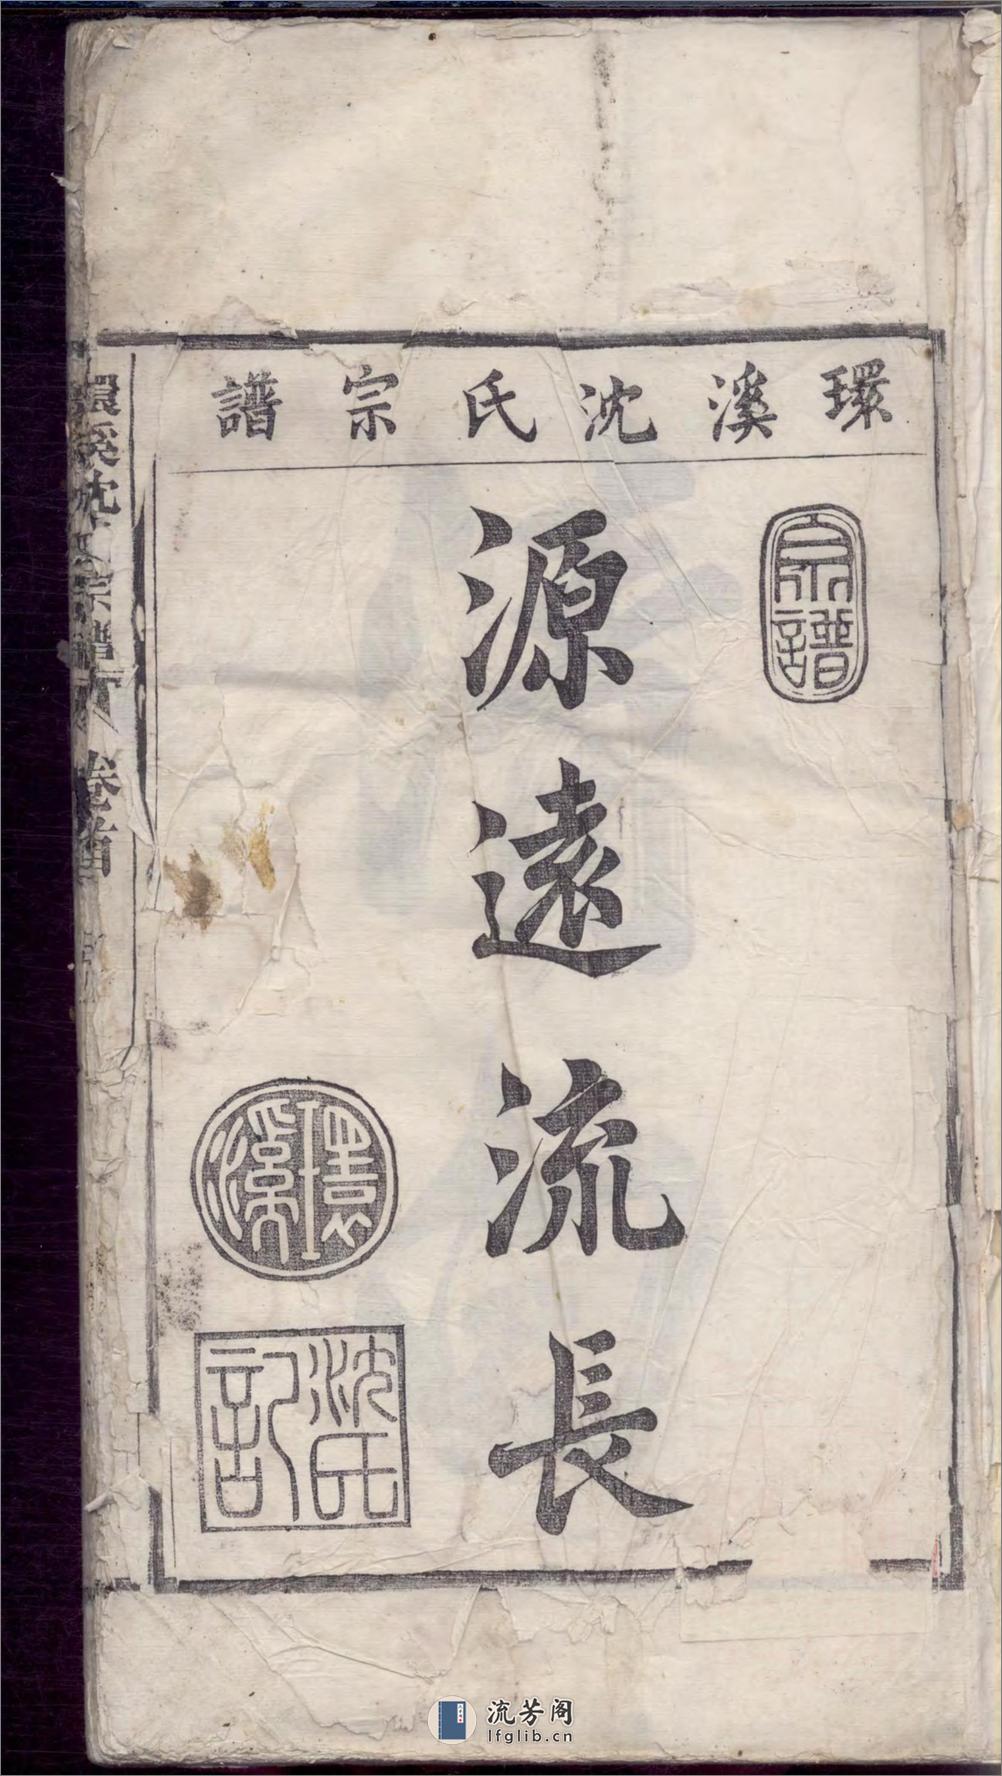 環溪沈氏宗譜
宗譜
源遠流長
環溪
沈氏記
環溪沈氏宗譜
卷首
流芳阁
lfglib.cn